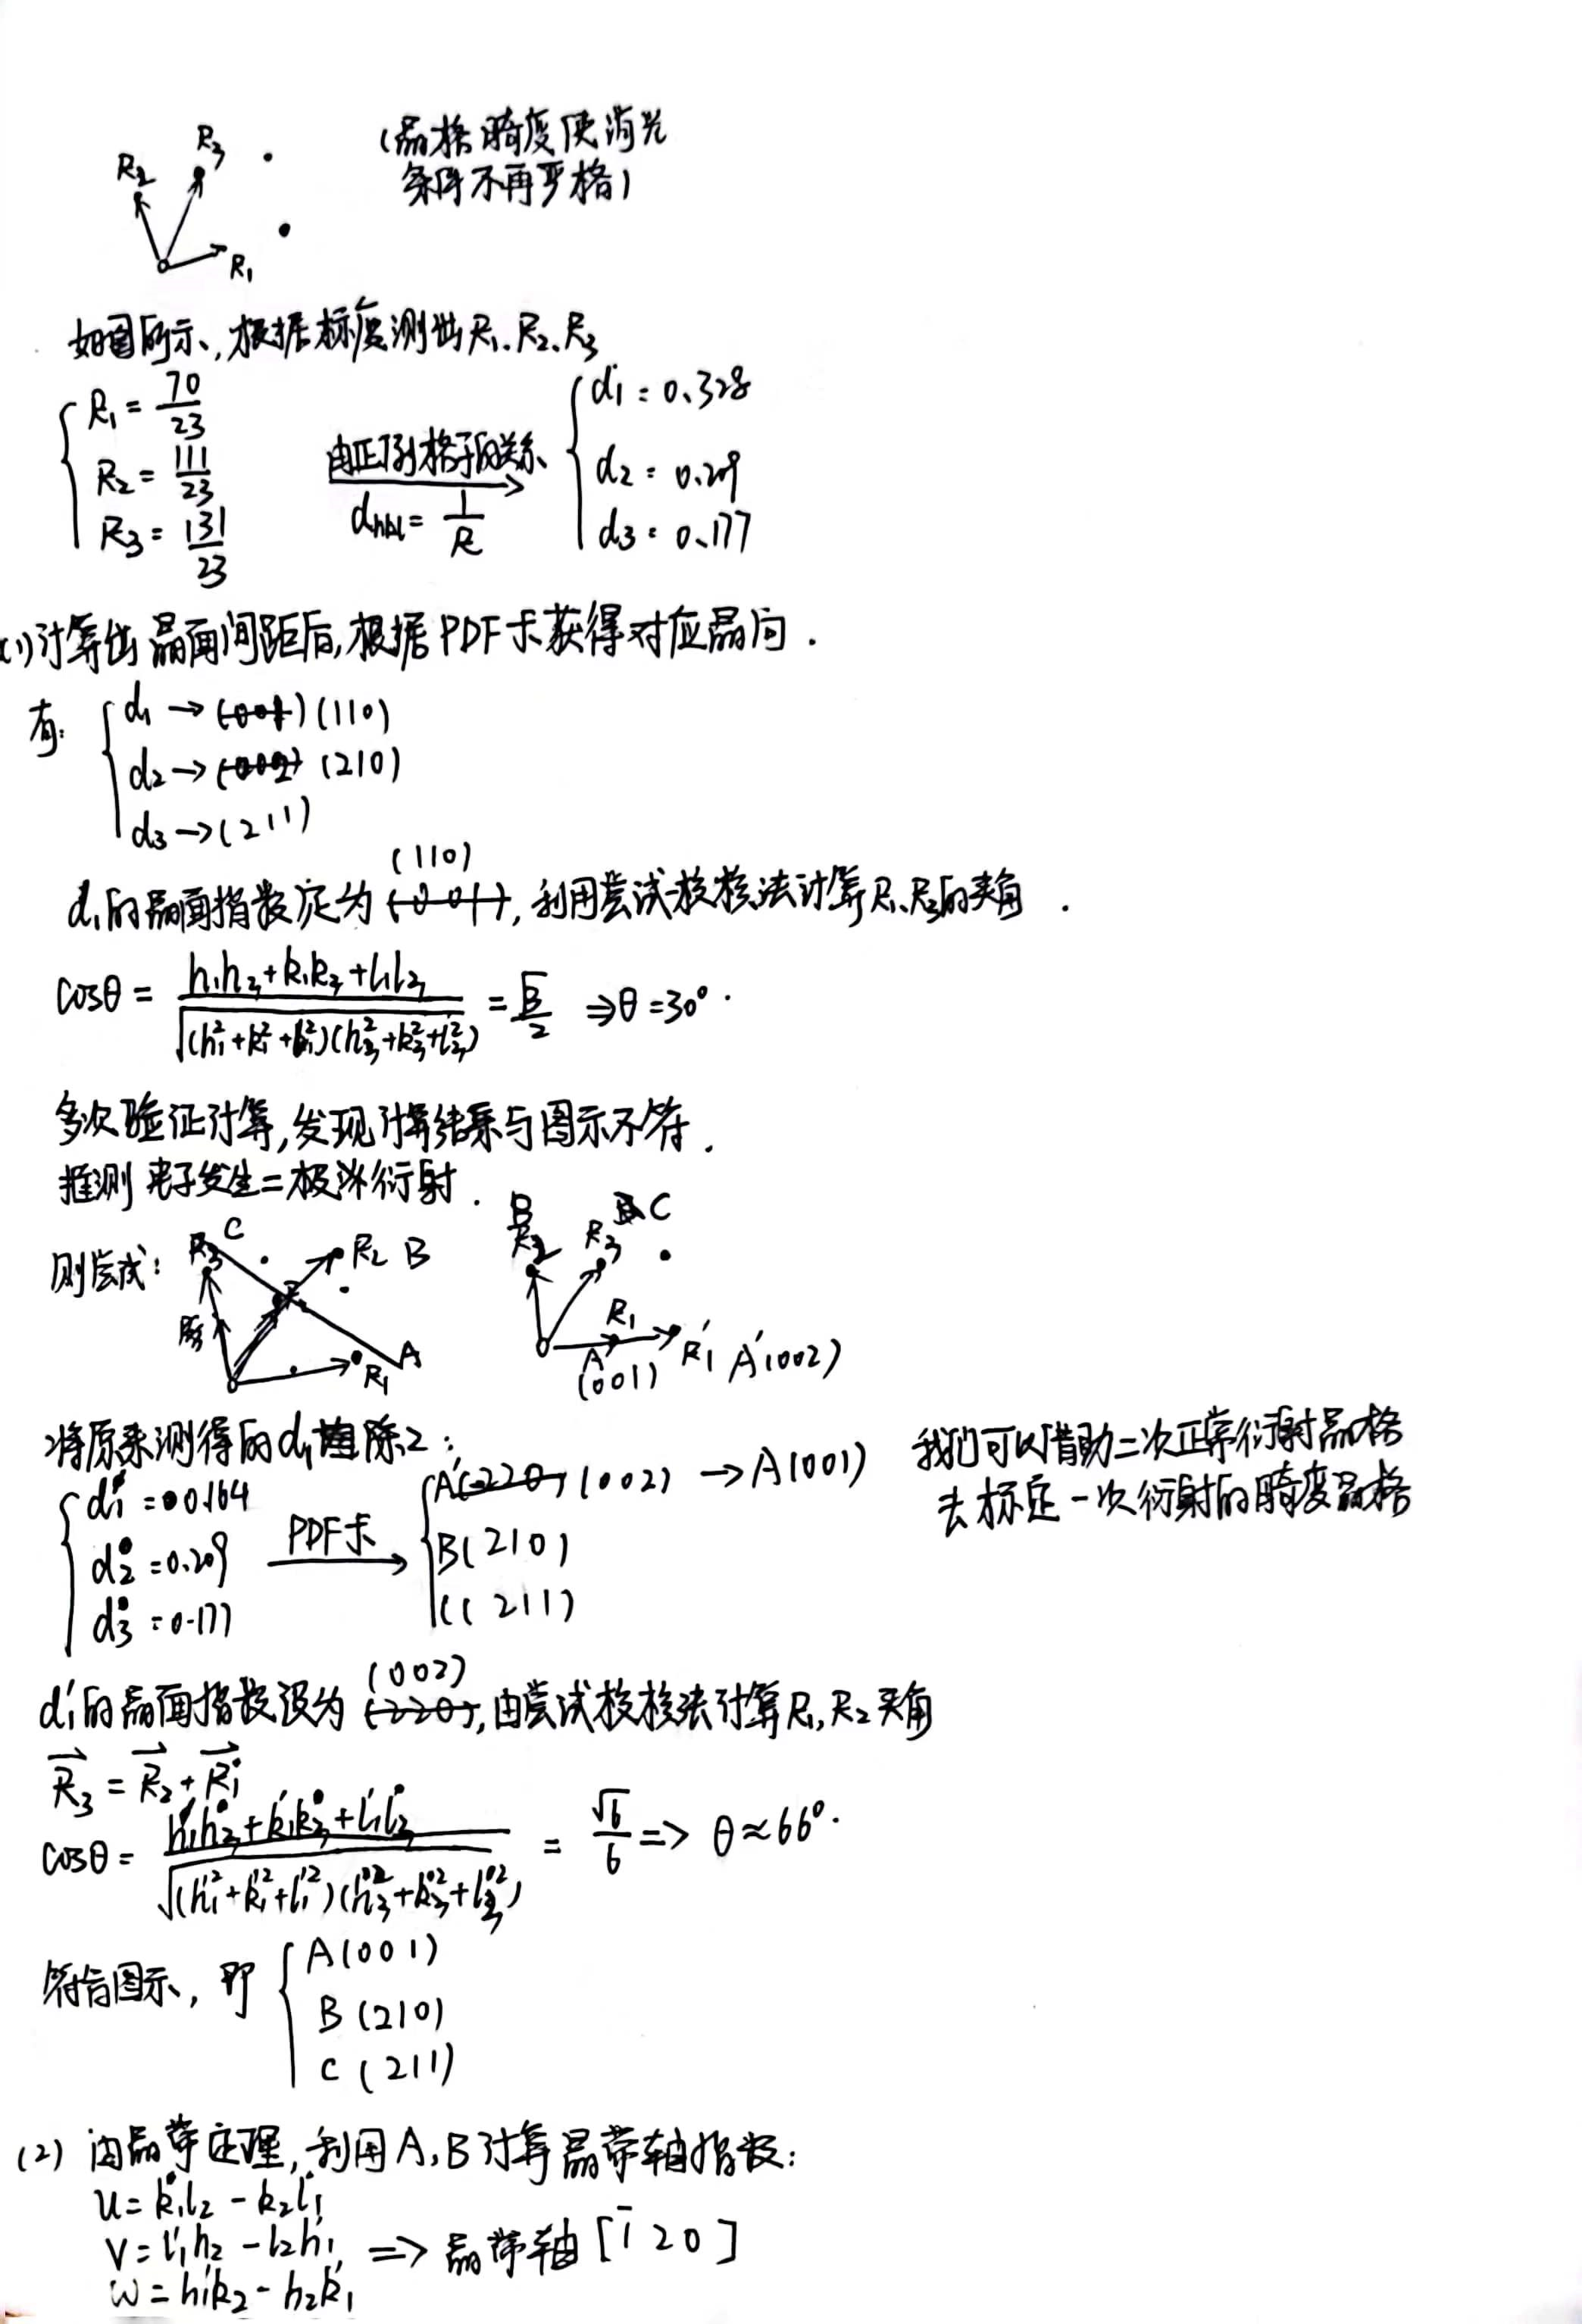 R₂ R₃ R₁
(晶格畸变使消光
条件不再严格)
如图所示,根据标度测出R₁、R₂、R₃
R₁ = 70/23
R₂ = 111/23
R₃ = 131/23
由正倒格子的关系
d_hkl = 1/R
d₁ = 0.328
d₂ = 0.209
d₃ = 0.177
(1)计算出晶面间距后,根据PDF卡获得对应晶向.
有:
d₁ → (001) (110)
d₂ → (002) (210)
d₃ → (211)
(110)
d₁的晶面指数定为(001),利用尝试校核法计算R₁、R₃的夹角.
cosθ = (h₁h₃+k₁k₃+l₁l₃)/√((h₁²+k₁²+l₁²)(h₃²+k₃²+l₃²)) = √3/2 ⇒ θ=30°.
多次验证计算,发现计算结果与图示不符.
推测电子发生二级衍射.
则尝试:
R₃ C R₂ B R₁ A
B R₂ R₃ C R₁ A (001) R₁′ A′(002)
将原来测得的d₁值除2:
d₁′ = 0.164
d₂ = 0.209
d₃ = 0.177
PDF卡
A′(220) (002) → A(001)
B(210)
C(211)
我们可以借助二次正常衍射晶格
去标定一次衍射的畸变晶格
(002)
d₁′的晶面指数设为(220),由尝试校核法计算R₁,R₂夹角
R₃ = R₂ + R₁
cosθ = (h₁′h₃+k₁′k₃+l₁′l₃)/√((h₁′²+k₁′²+l₁′²)(h₃²+k₃²+l₃²)) = √6/6 => θ≈66°.
符合图示,即
A(001)
B(210)
C(211)
(2) 由晶带定理,利用A,B计算晶带轴指数:
u = k₁l₂ - k₂l₁
v = l₁h₂ - l₂h₁ => 晶带轴[1̄20]
w = h₁k₂ - h₂k₁